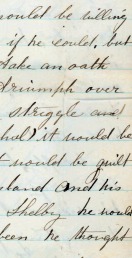 would be willing
if he could, but
take an oath
triumph over
struggle an
it would be
t would be guilt
eland and his
Shelby he would
been he thought